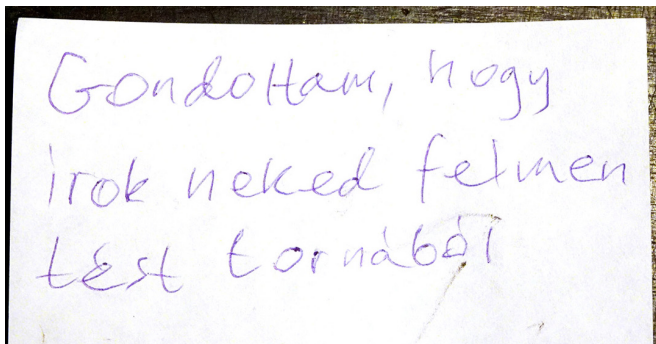 Gondoltam, hogy
irok neked felmen
tést tornából